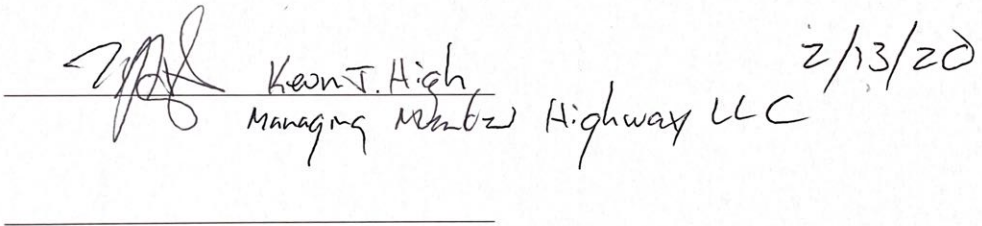 Kevin J. High 2/13/20
Managing Member Highway LLC